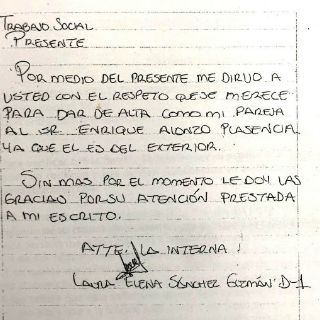 TRABAJO SOCIAL
PRESENTE
POR MEDIO DEL PRESENTE ME DIRIJO A
USTED CON EL RESPETO QUE SE MERECE
PARA DAR DE ALTA COMO MI PAREJA
AL SR. ENRIQUE ALONZO PLASENCIA
YA QUE EL ES DEL EXTERIOR.
SIN MAS POR EL MOMENTO LE DOY LAS
GRACIAS POR SU ATENCIÓN PRESTADA
A MI ESCRITO.
ATTE: LA INTERNA:
LAURA ELENA SÁNCHEZ GUZMÁN D-1